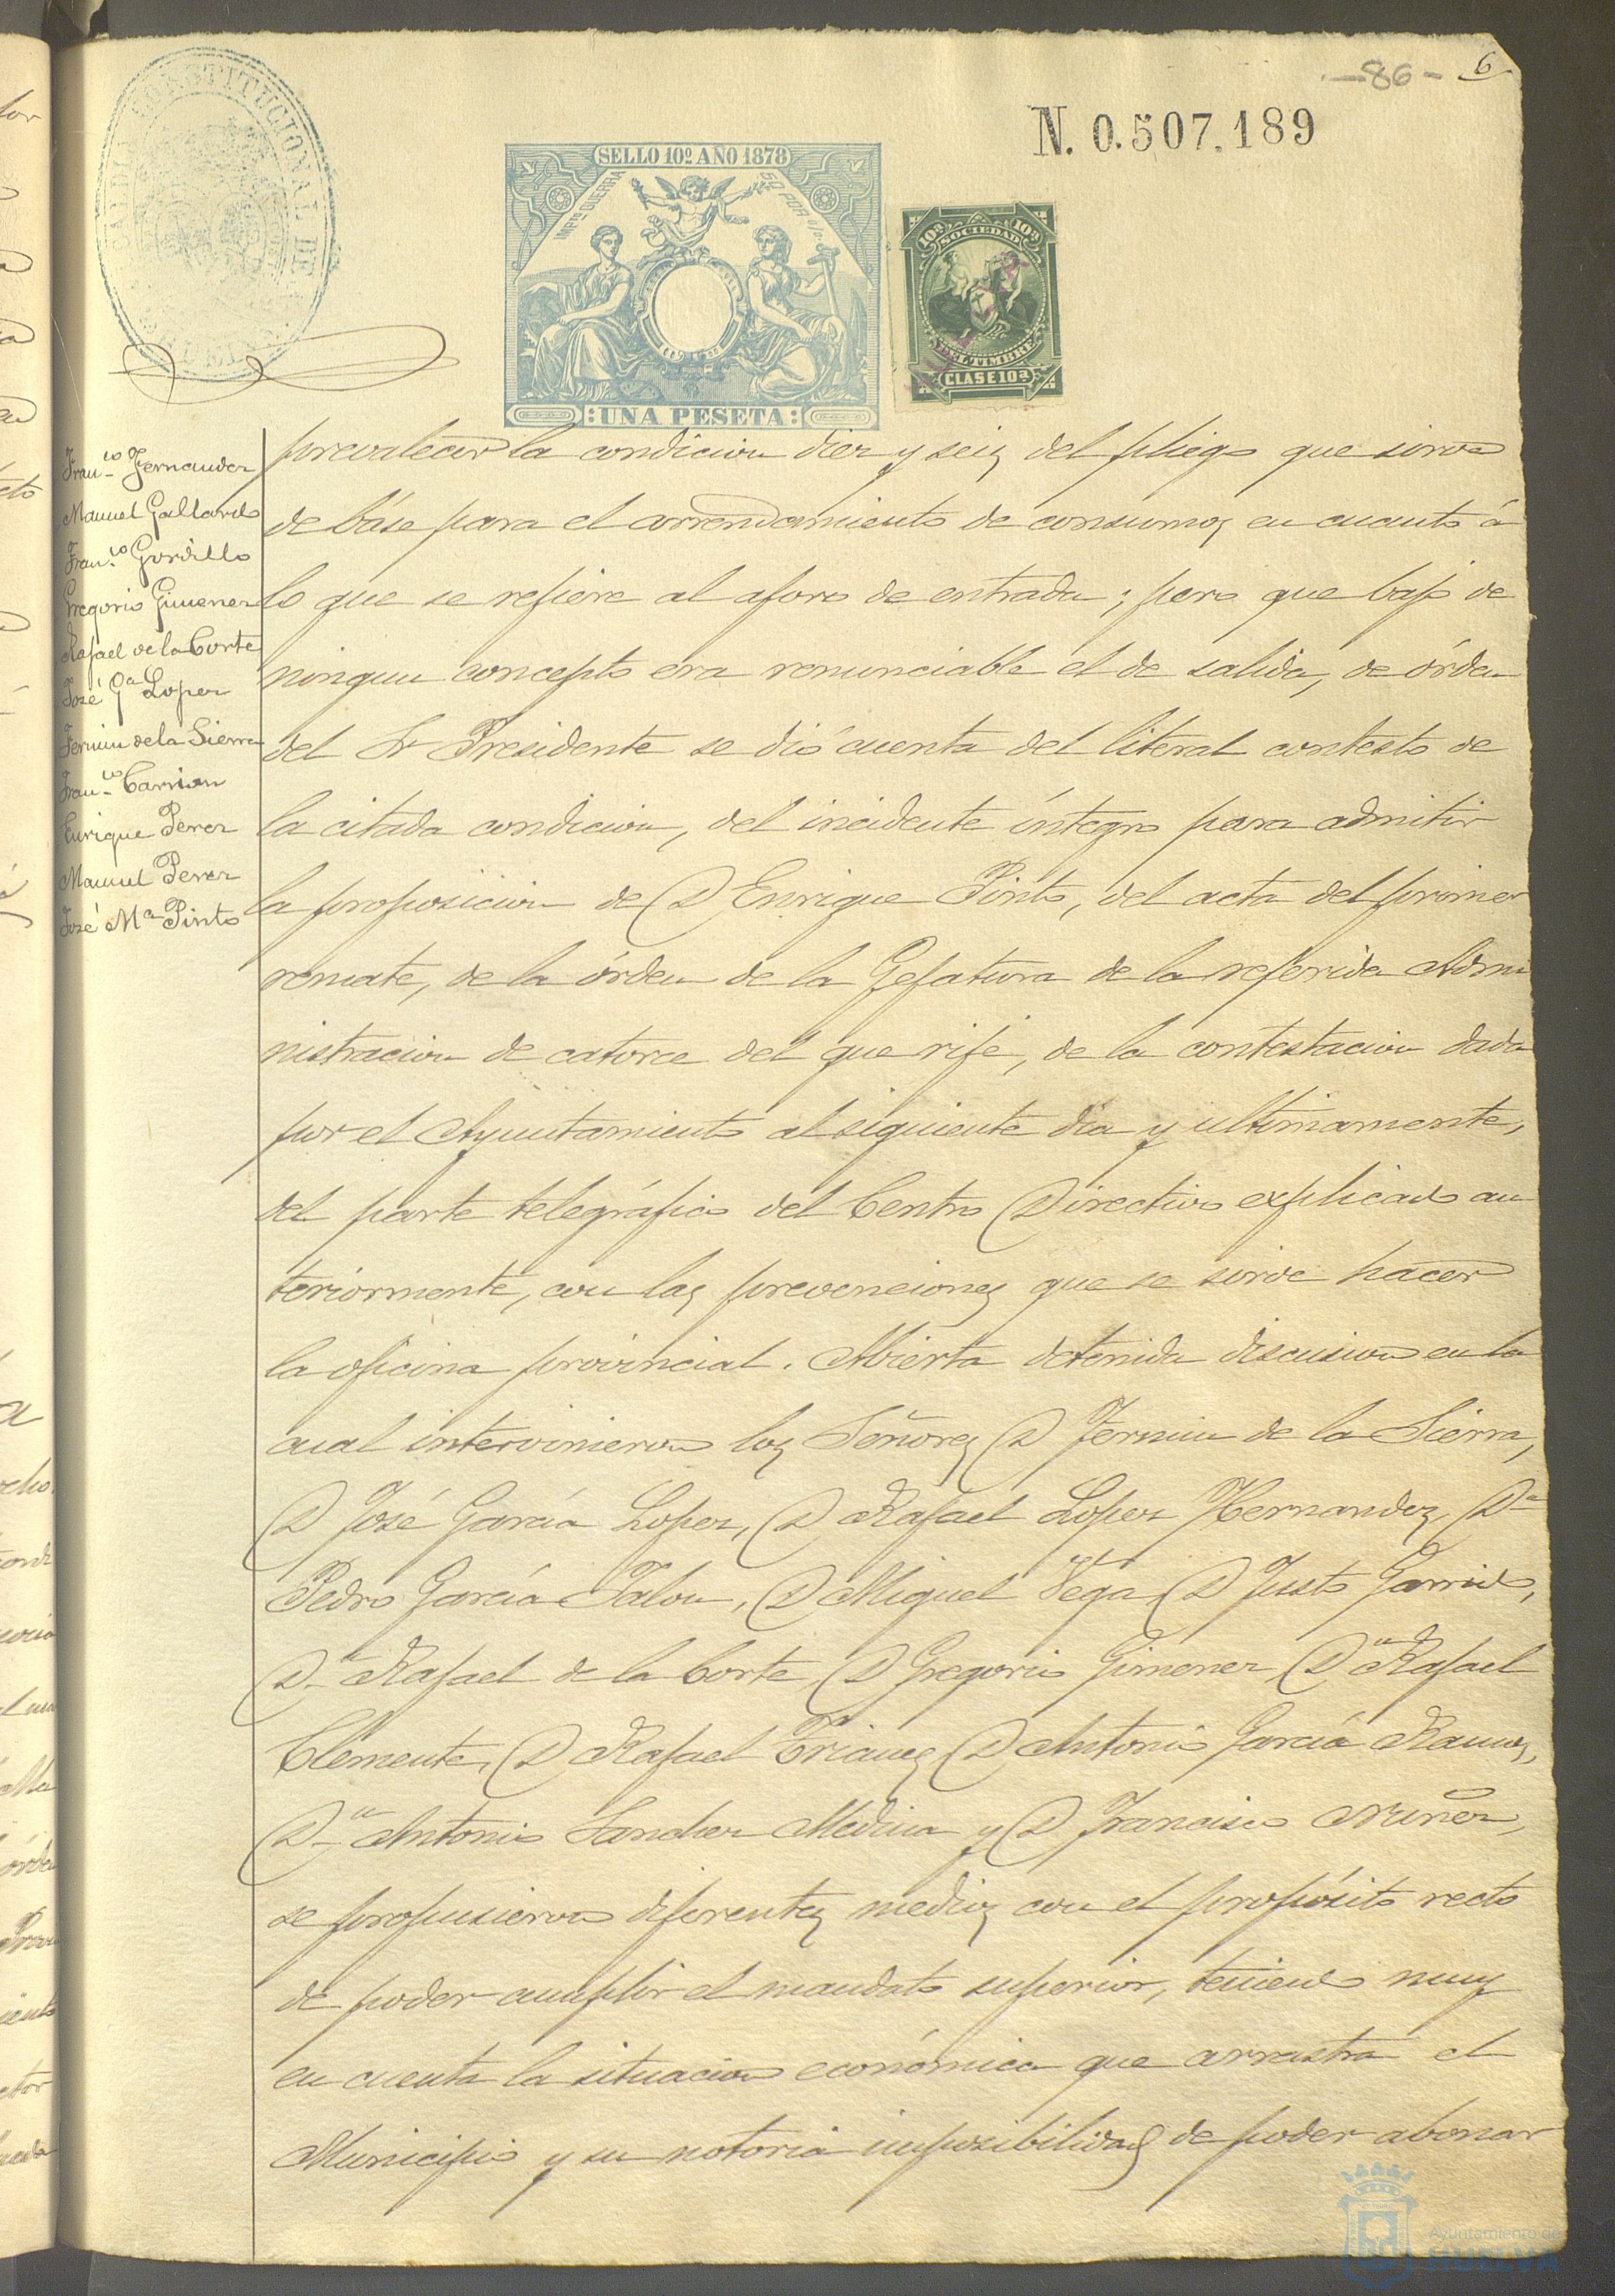 -86- 6
N. 0.507.189
ALCALDIA CONSTITUCIONAL DE HUELVA
SELLO 10º AÑO 1878
IMPTO GUERRA 50 POR 0/0
UNA PESETA
10ª SOCIEDAD 10ª
DEL TIMBRE
CLASE 10ª
Fran.co Fernandez
Manuel Gallardo
Fran.co Gordillo
Gregorio Gimenez
Rafael de la Corte
José Ga Lopez
Fermin de la Sierra
Fran.co Carrion
Enrique Perez
Manuel Perez
José Ma Pinto
prevalecer la condicion diez y seis del pliego que sirve
de báse para el arrendamiento de consumos en cuanto á
lo que se refiere al aforo de entrada; pero que bajo de
ningun concepto era renunciable el de salida, de órden
del Sr Presidente se dió cuenta del literal contesto de
la citada condicion, del incidente íntegro para admitir
la proposicion de D Enrique Pinto, del acta del primer
remate, de la órden de la Gefatura de la referida Admi
nistracion de catorce del que rije, de la contestacion dada
por el Ayuntamiento al siguiente dia y ultimamente,
del parte telegráfico del Centro Directivo explicado an
teriormente, con las prevenciones que se sirve hacer
la oficina provincial. Abierta detenida discusion en la
cual intervinieron los Señores D Fermin de la Sierra,
D José García Lopez, D Rafael Lopez Hernandez, Dn
Pedro García Talon, D Miguel Vega D Justo Garrido,
Dn Rafael de la Corte, D Gregorio Gimenez, Dn Rafael
Clemente, D Rafael Trianes D Antonio García Ramos,
Dn Antonio Sanchez Medina y D Francisco Nuñez,
se propusieron diferentes medios con el propósito recto
de poder cumplir el mandato superior, teniendo muy
en cuenta la situacion económica que arrastra el
Municipio y su notoria imposibilidad de poder abonar
Ayuntamiento de
HUELVA